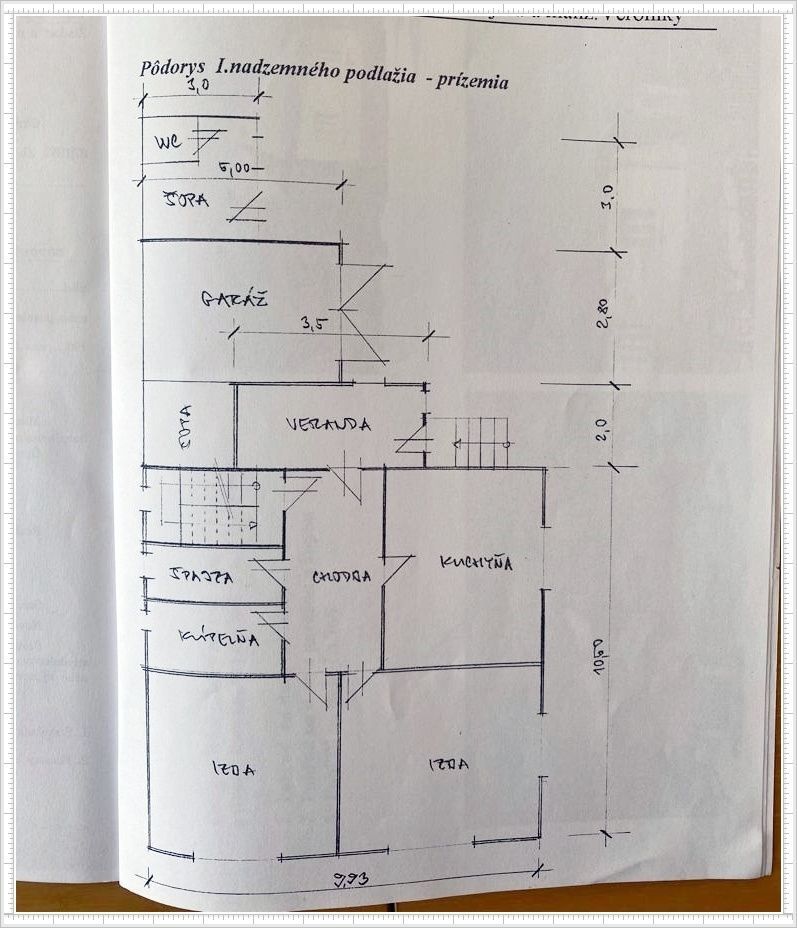 Veroniky
Pôdorys I.nadzemného podlažia - prízemia
3,0
WC
5,00
ŠOPA
3,0
GARÁŽ
3,5
2,80
VERANDA
2,0
ŠPAJZA
CHODBA
KUCHYŇA
KÚPEĽŇA
10,60
IZBA
IZBA
9,93